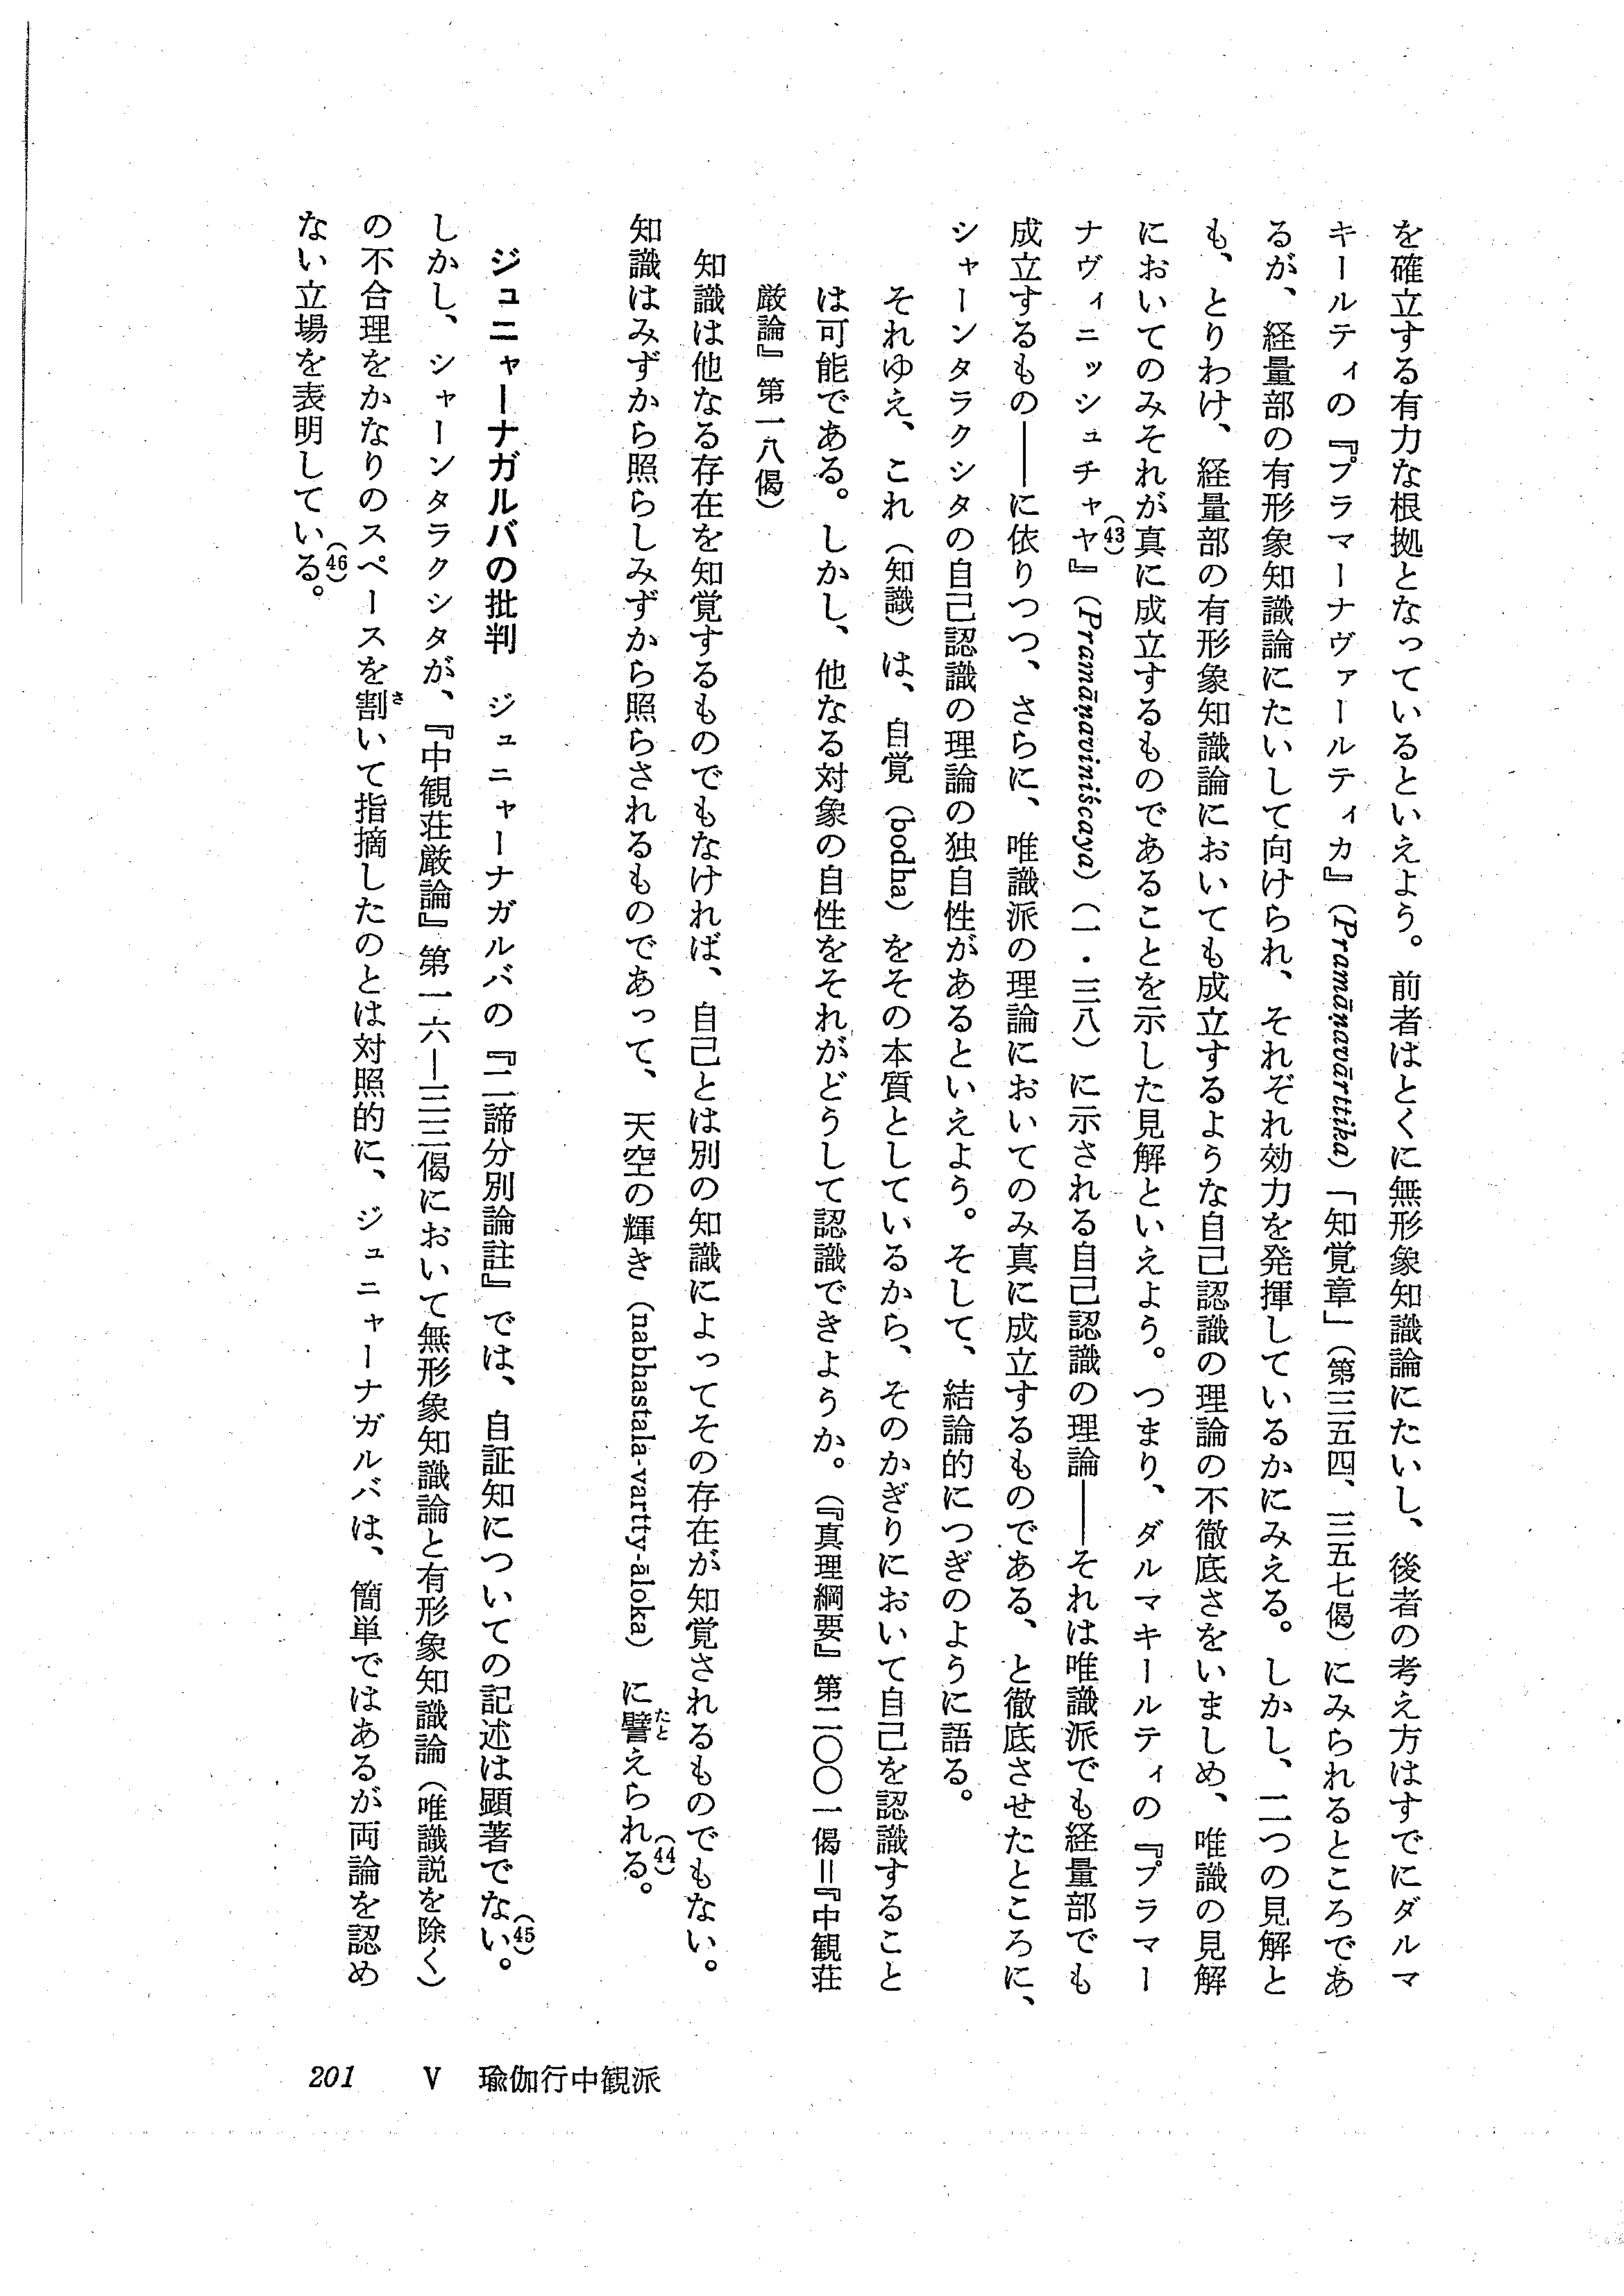 を確立する有力な根拠となっているといえよう。前者はとくに無形象知識論にたいし、後者の考え方はすでにダルマ
キールティの『プラマーナヴァールティカ』（Pramāṇavārttika）「知覚章」（第三五四、三五七偈）にみられるところであ
るが、経量部の有形象知識論にたいして向けられ、それぞれ効力を発揮しているかにみえる。しかし、二つの見解と
も、とりわけ、経量部の有形象知識論においても成立するような自己認識の理論の不徹底さをいましめ、唯識の見解
においてのみそれが真に成立するものであることを示した見解といえよう。つまり、ダルマキールティの『プラマー
ナヴィニッシュチャヤ』（43）（Pramāṇaviniścaya）（一・三八）に示される自己認識の理論――それは唯識派でも経量部でも
成立するもの――に依りつつ、さらに、唯識派の理論においてのみ真に成立するものである、と徹底させたところに、
シャーンタラクシタの自己認識の理論の独自性があるといえよう。そして、結論的につぎのように語る。
それゆえ、これ（知識）は、自覚（bodha）をその本質としているから、そのかぎりにおいて自己を認識すること
は可能である。しかし、他なる対象の自性をそれがどうして認識できようか。（『真理綱要』第二〇〇一偈＝『中観荘
厳論』第一八偈）
知識は他なる存在を知覚するものでもなければ、自己とは別の知識によってその存在が知覚されるものでもない。
知識はみずから照らしみずから照らされるものであって、天空の輝き（nabhastala-vartty-āloka）に譬たとえられる。（44）
ジュニャーナガルバの批判　ジュニャーナガルバの『二諦分別論註』では、自証知についての記述は顕著でない。（45）
しかし、シャーンタラクシタが、『中観荘厳論』第一六―三三偈において無形象知識論と有形象知識論（唯識説を除く）
の不合理をかなりのスペースを割さいて指摘したのとは対照的に、ジュニャーナガルバは、簡単ではあるが両論を認め
ない立場を表明している。（46）
201　V　瑜伽行中観派